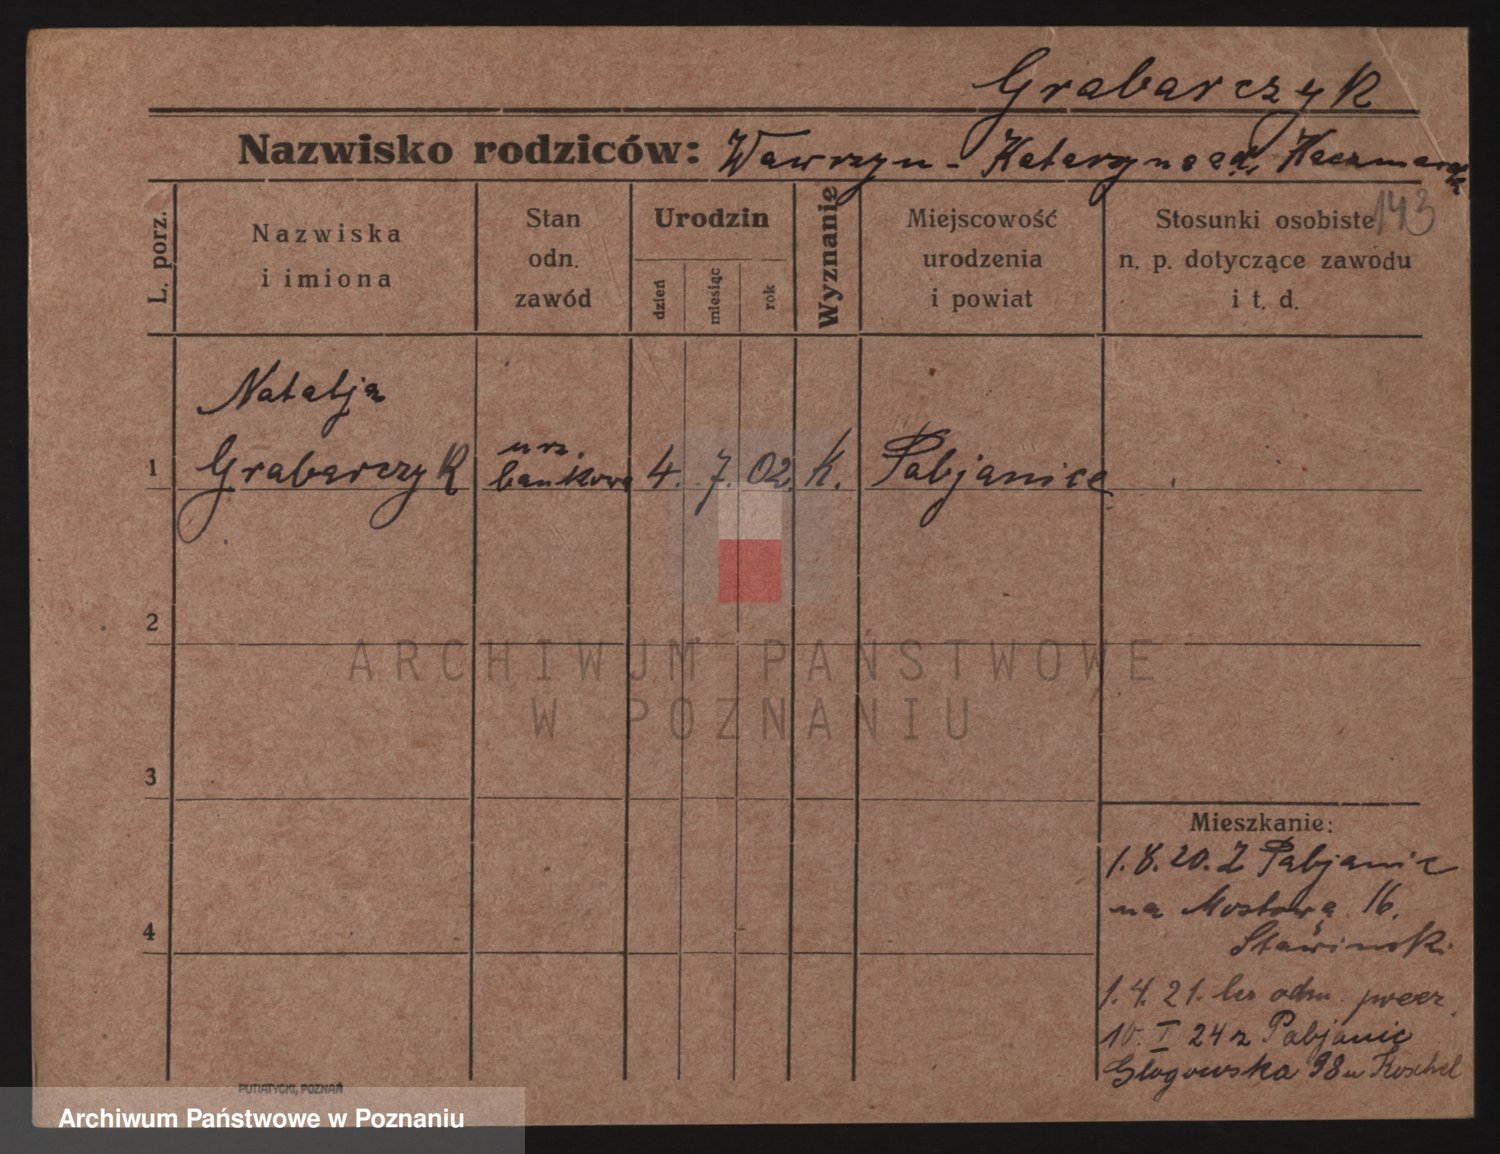 Grabarczyk
Nazwisko rodziców: Wawrzyn - Katarzyna Kaczmarek
143
L. porz.
Nazwiska
i imiona
Stan
odn.
zawód
Urodzin
dzień
miesiąc
rok
Wyznanie
Miejscowość
urodzenia
i powiat
Stosunki osobiste
n. p. dotyczące zawodu
i t. d.
Natalja
1 Grabarczyk
urz.
bankowa
4. 7. 02. K. Pabjanice
2
3
4
ARCHIWUM PAŃSTWOWE
W POZNANIU
Mieszkanie:
1.8.20. Z Pabjanic
na Mostową 16.
1.4.21. bez odm.
10. I 24 z Pabjanic
Głogowska 98 u Koschel
PUTIATYCKI, POZNAŃ
Archiwum Państwowe w Poznaniu